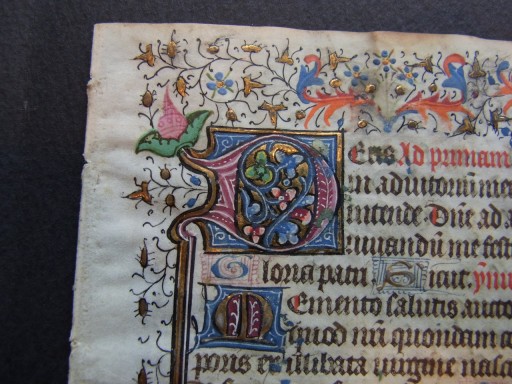 DEus Ad primam
In adiutoriū me
intende. Dn̄e ad a
iuuandū me fest
Gloria patri Sicut.
Memento salutis aucto
quod nr̄i quondam c
poris ex illibata uirgine nasc